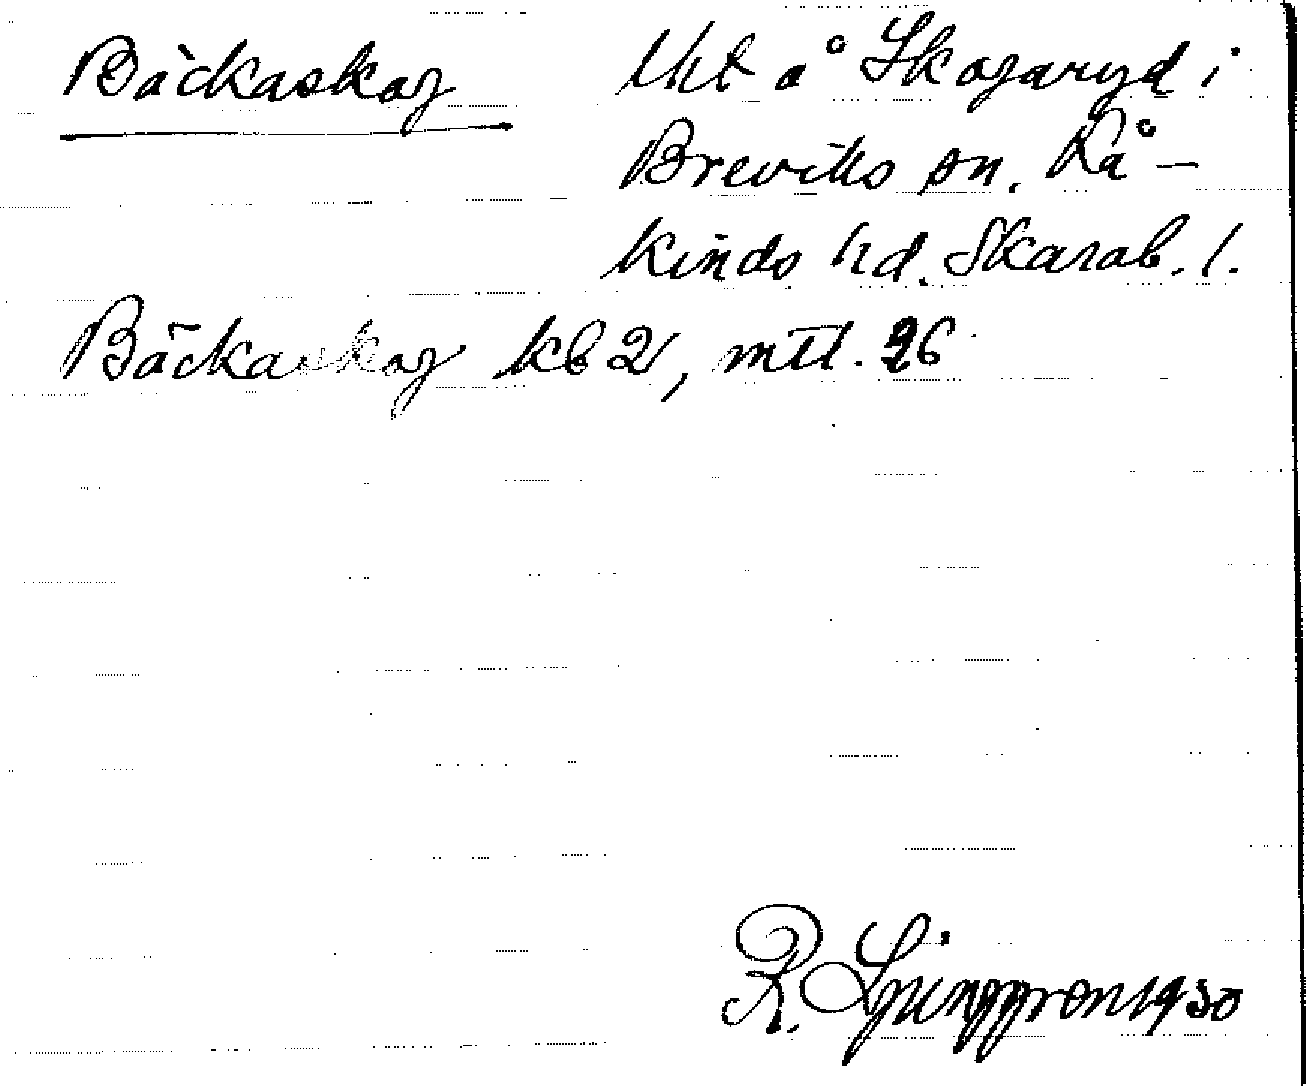 Bäckaskog Uht å Skogaryd i
Breviks sn. Kå-
kinds hd. Skarab. l.
Bäckaskog kb 2, mtl. 26
R. Ljunggren 1930